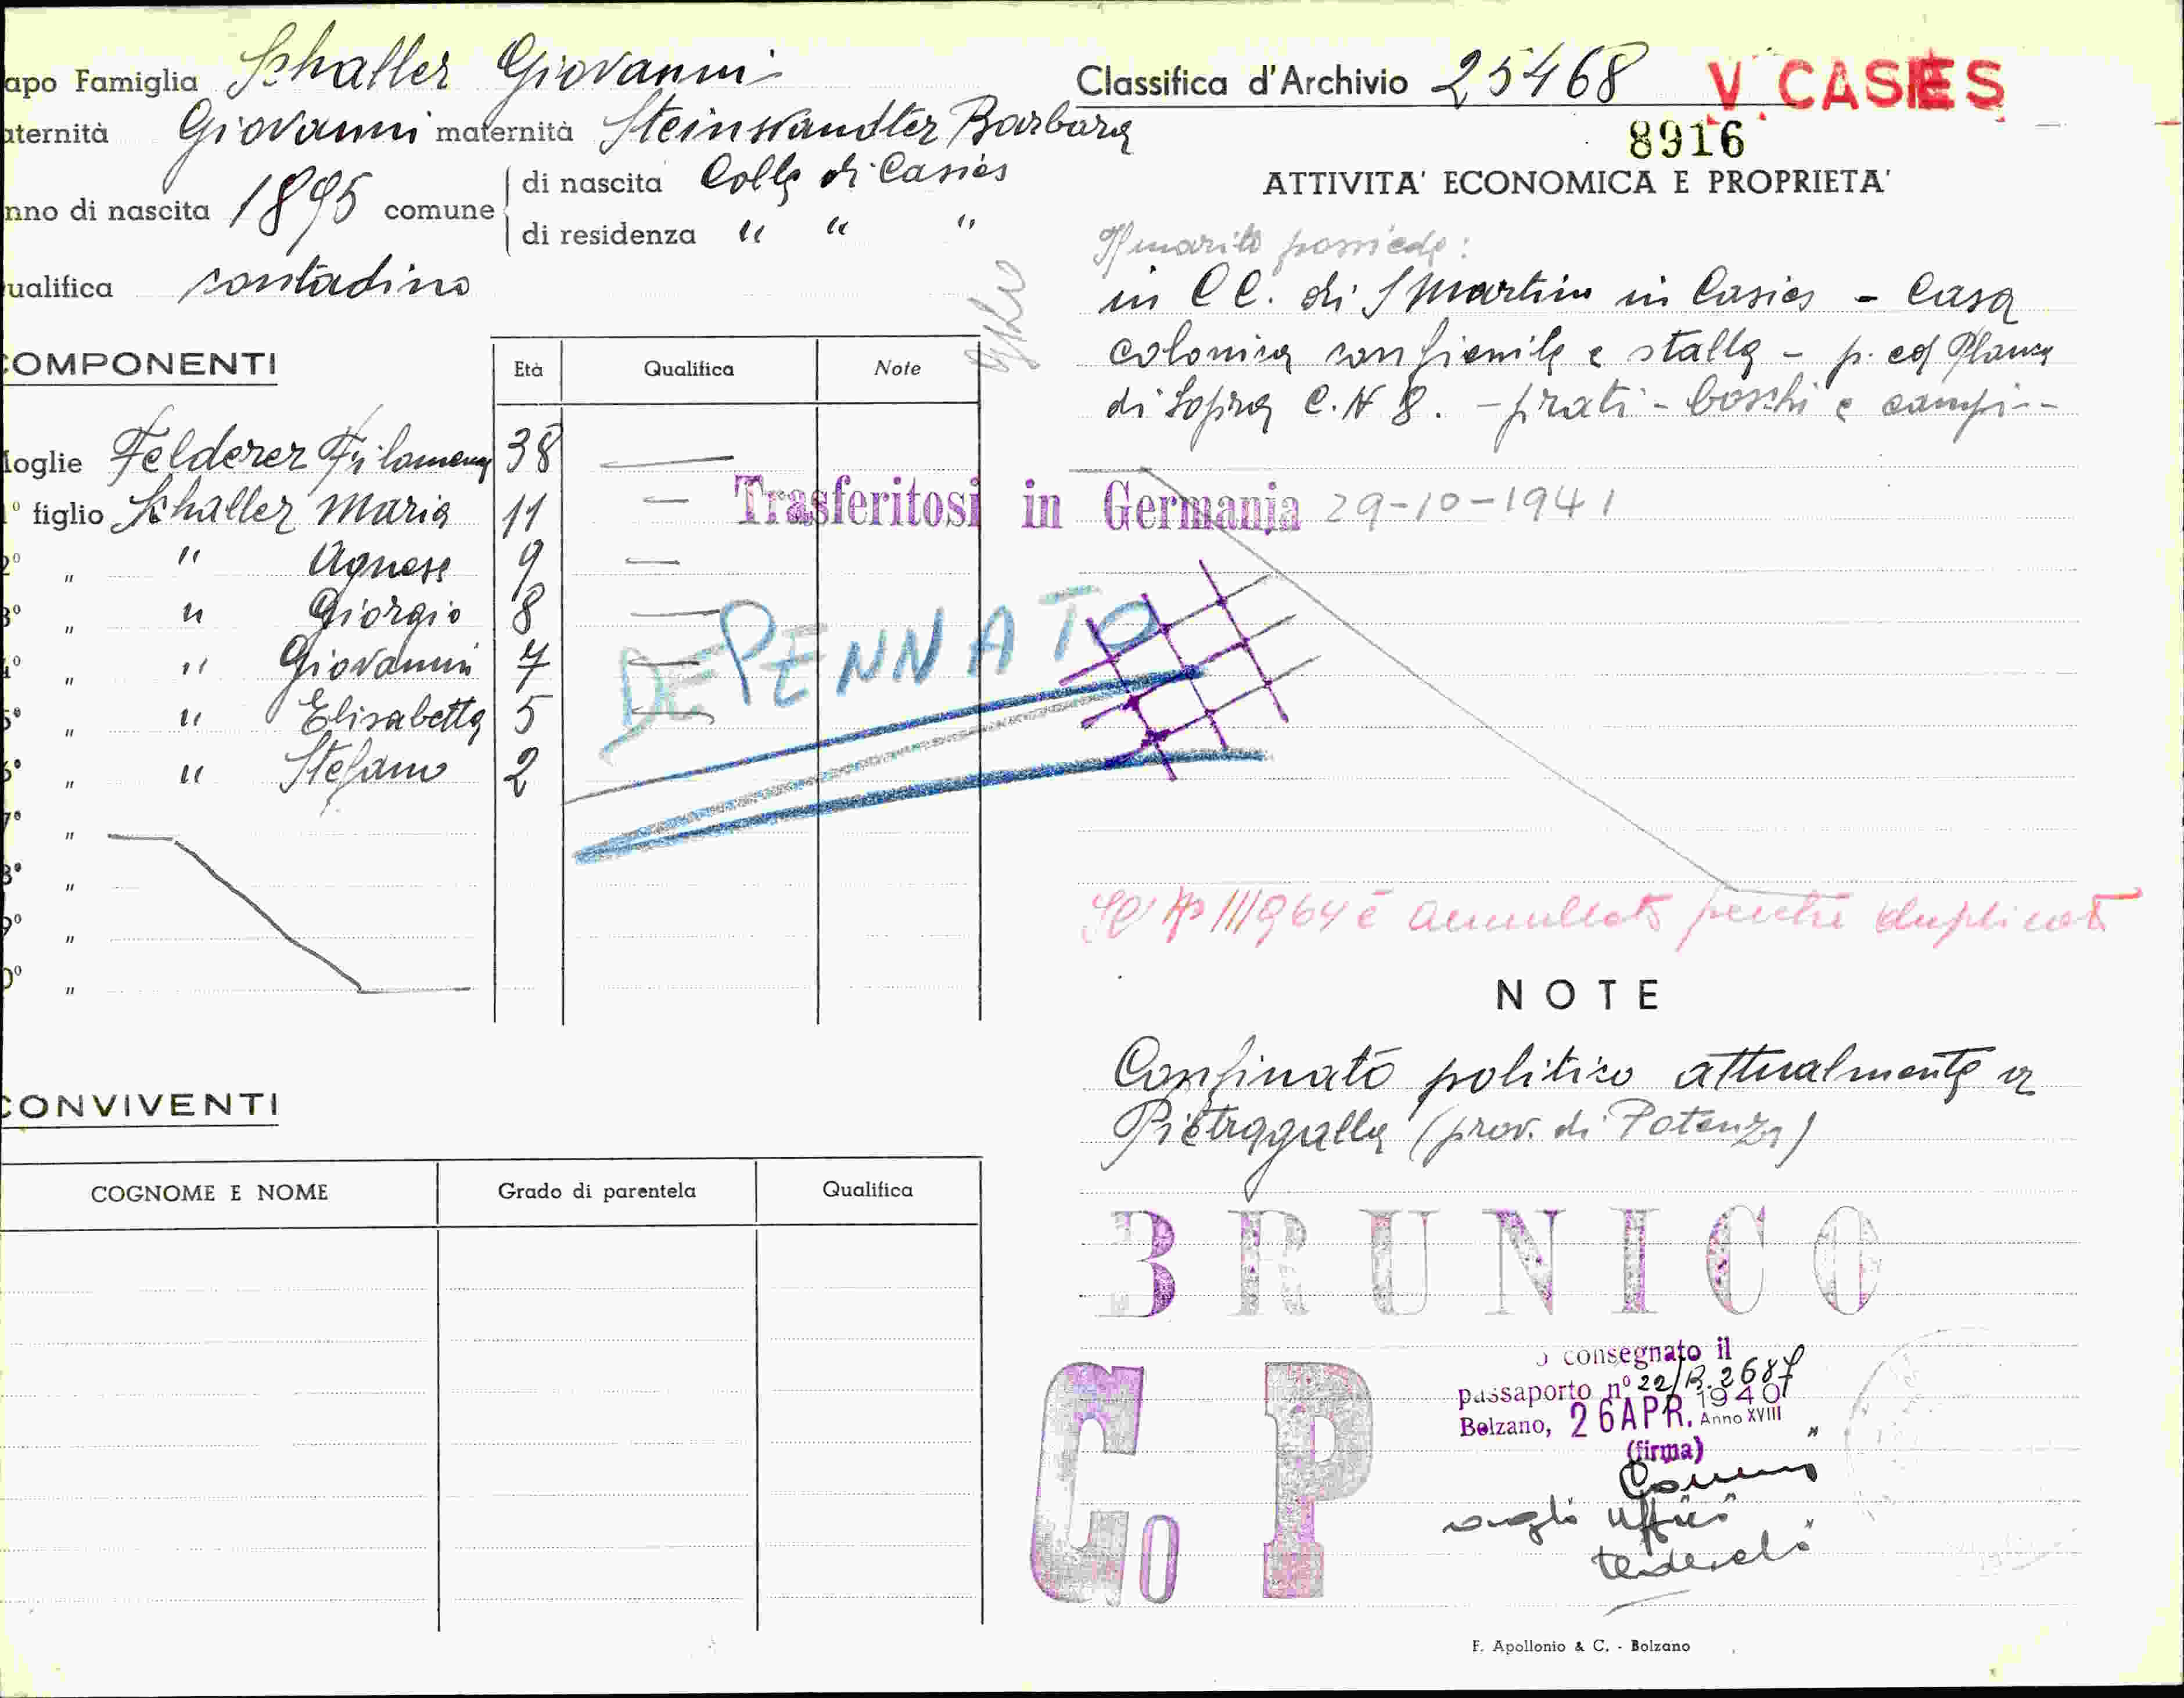 apo Famiglia Schaller Giovanni
aternità Giovanni maternità Steinwandter Barbara
nno di nascita 1895 comune di nascita Colle di Casies
di residenza " " "
ualifica contadino
COMPONENTI Età Qualifica Note
oglie Felderer Filomena 38 —
1° figlio Schaller Maria 11 —
2° " " Agnese 9 —
3° " " Giorgio 8 —
4° " " Giovanni 7 —
5° " " Elisabetta 5 —
6° " " Stefano 2
7° "
8° "
9° "
0° "
DEPENNATO
Trasferitosi in Germania 29-10-1941
CONVIVENTI
COGNOME E NOME Grado di parentela Qualifica
Classifica d'Archivio 25468 V CASIES
8916
ATTIVITA' ECONOMICA E PROPRIETA'
Il marito possiede:
in C C. di S Martino in Casies - Casa
colonica con fienile e stalla - p. ed Plança
di Sopra C. N 8. - prati - boschi e campi --
964 è annullato perché duplicato
NOTE
Confinato politico attualmente a
Pietragalla (prov. di Potenza)
BRUNICO
Co P
consegnato il
passaporto n° 22/B.2687
Bolzano, 26 APR. 1940 Anno XVIII
(firma)
uffici
tedeschi
F. Apollonio & C. - Bolzano